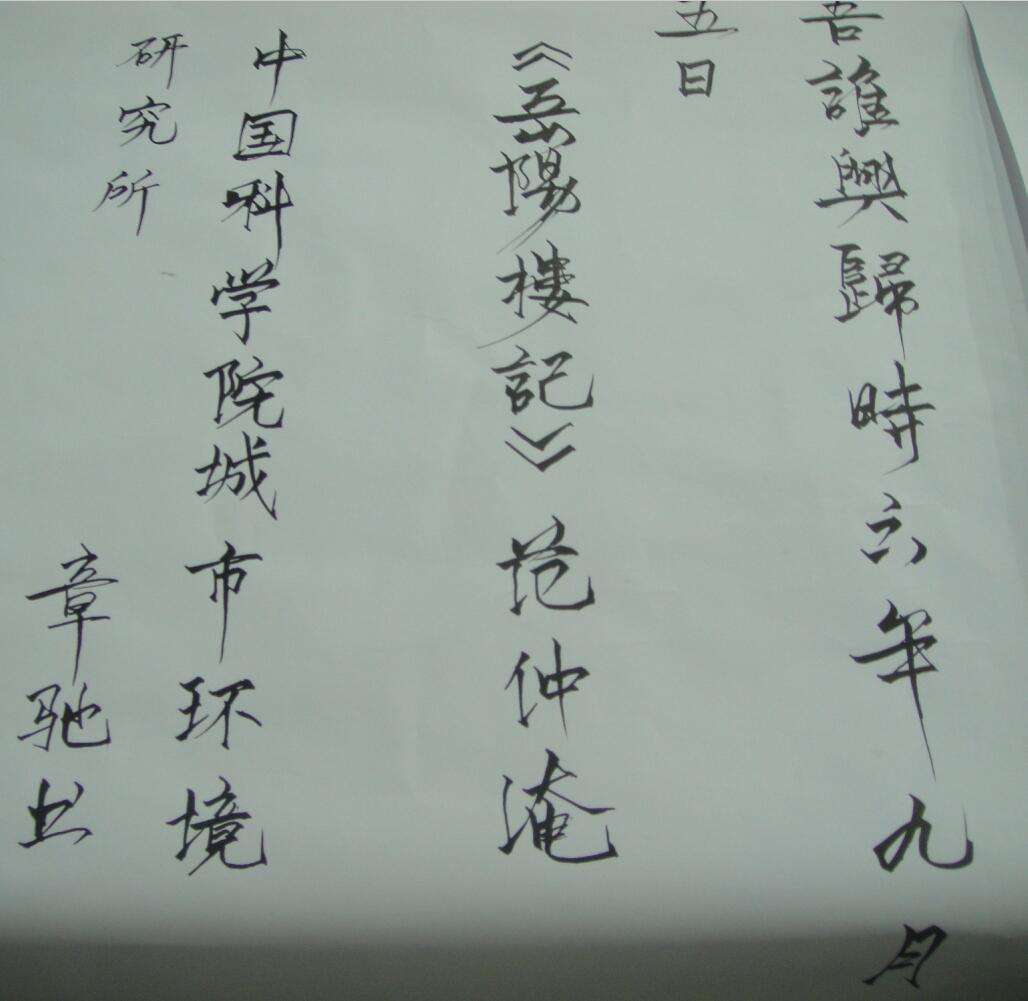 吾誰興歸時六年九月
五日
《岳陽樓記》范仲淹
中国科学院城市环境
研究所
章驰书